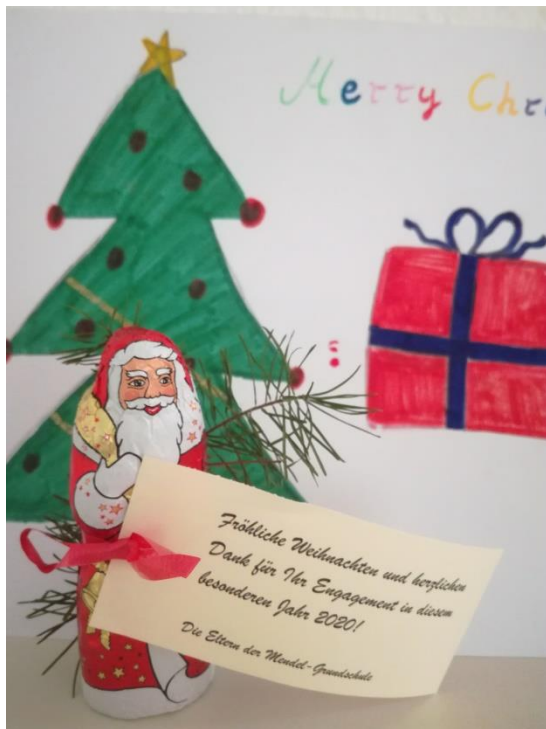 Merry Chr
Fröhliche Weihnachten und herzlichen
Dank für Ihr Engagement in diesem
besonderen Jahr 2020!
Die Eltern der Mendel-Grundschule